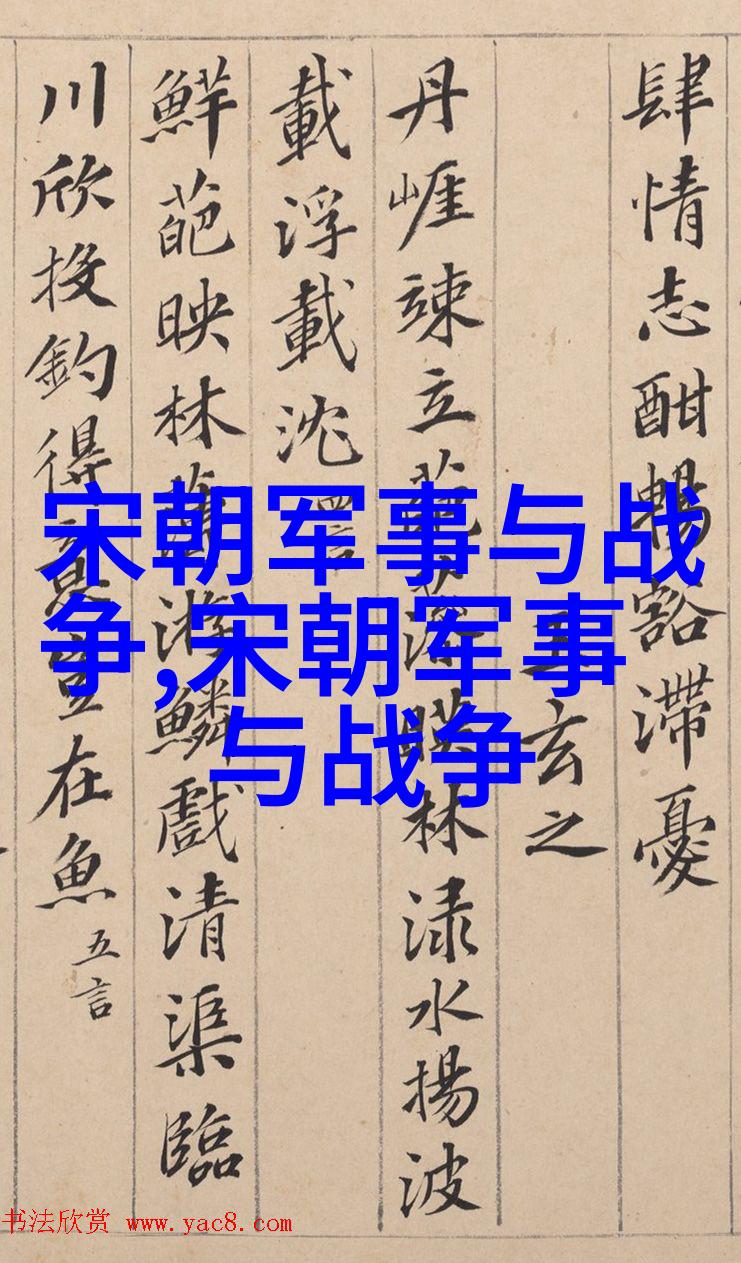 宋朝军事与战
争,宋朝军事
与战争
肆情志酣暢豁滯憂
王玄之
丹崕竦立葩藻暎林渌水揚波
載浮載沈 四言
鮮葩映林薄游鱗戲清渠臨
川欣投釣得意豈在魚 五言
书法欣赏 www.yac8.com